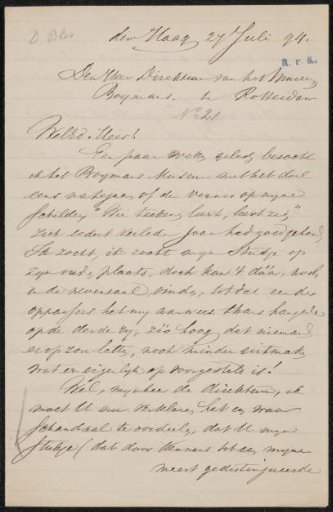 D. Bles
den Haag 27 Juli 94.
R.K.D.
Den Heer Direkteur van het Museum
Boymans. te Rotterdam
No 21
WelEd. Heer!
Een paar weken geleden bezocht
ik het Boymans Museum met het doel
eens na te gaan of den vernis op myne
schildery "Wie
zich sedert verleden jaar had goed gehouden
Ik zocht, ik zocht myn stukje op
zyn oude plaats, doch kon 't dáár, noch
in de revenzaal vinden, tot dat een der
oppassers het my aanwees thans hangende
op de derde ry, zóó hoog dat niemand
er op zou letten, noch minder uitmaken
wat er eigenlyk op voorgesteld is!
Wel, mynheer de direkteur, ik
moet U verklaren het een waar
schandaal te oordeelen, dat U myn
stukje (dat door kenners tot een myner
meest gedistingueerde